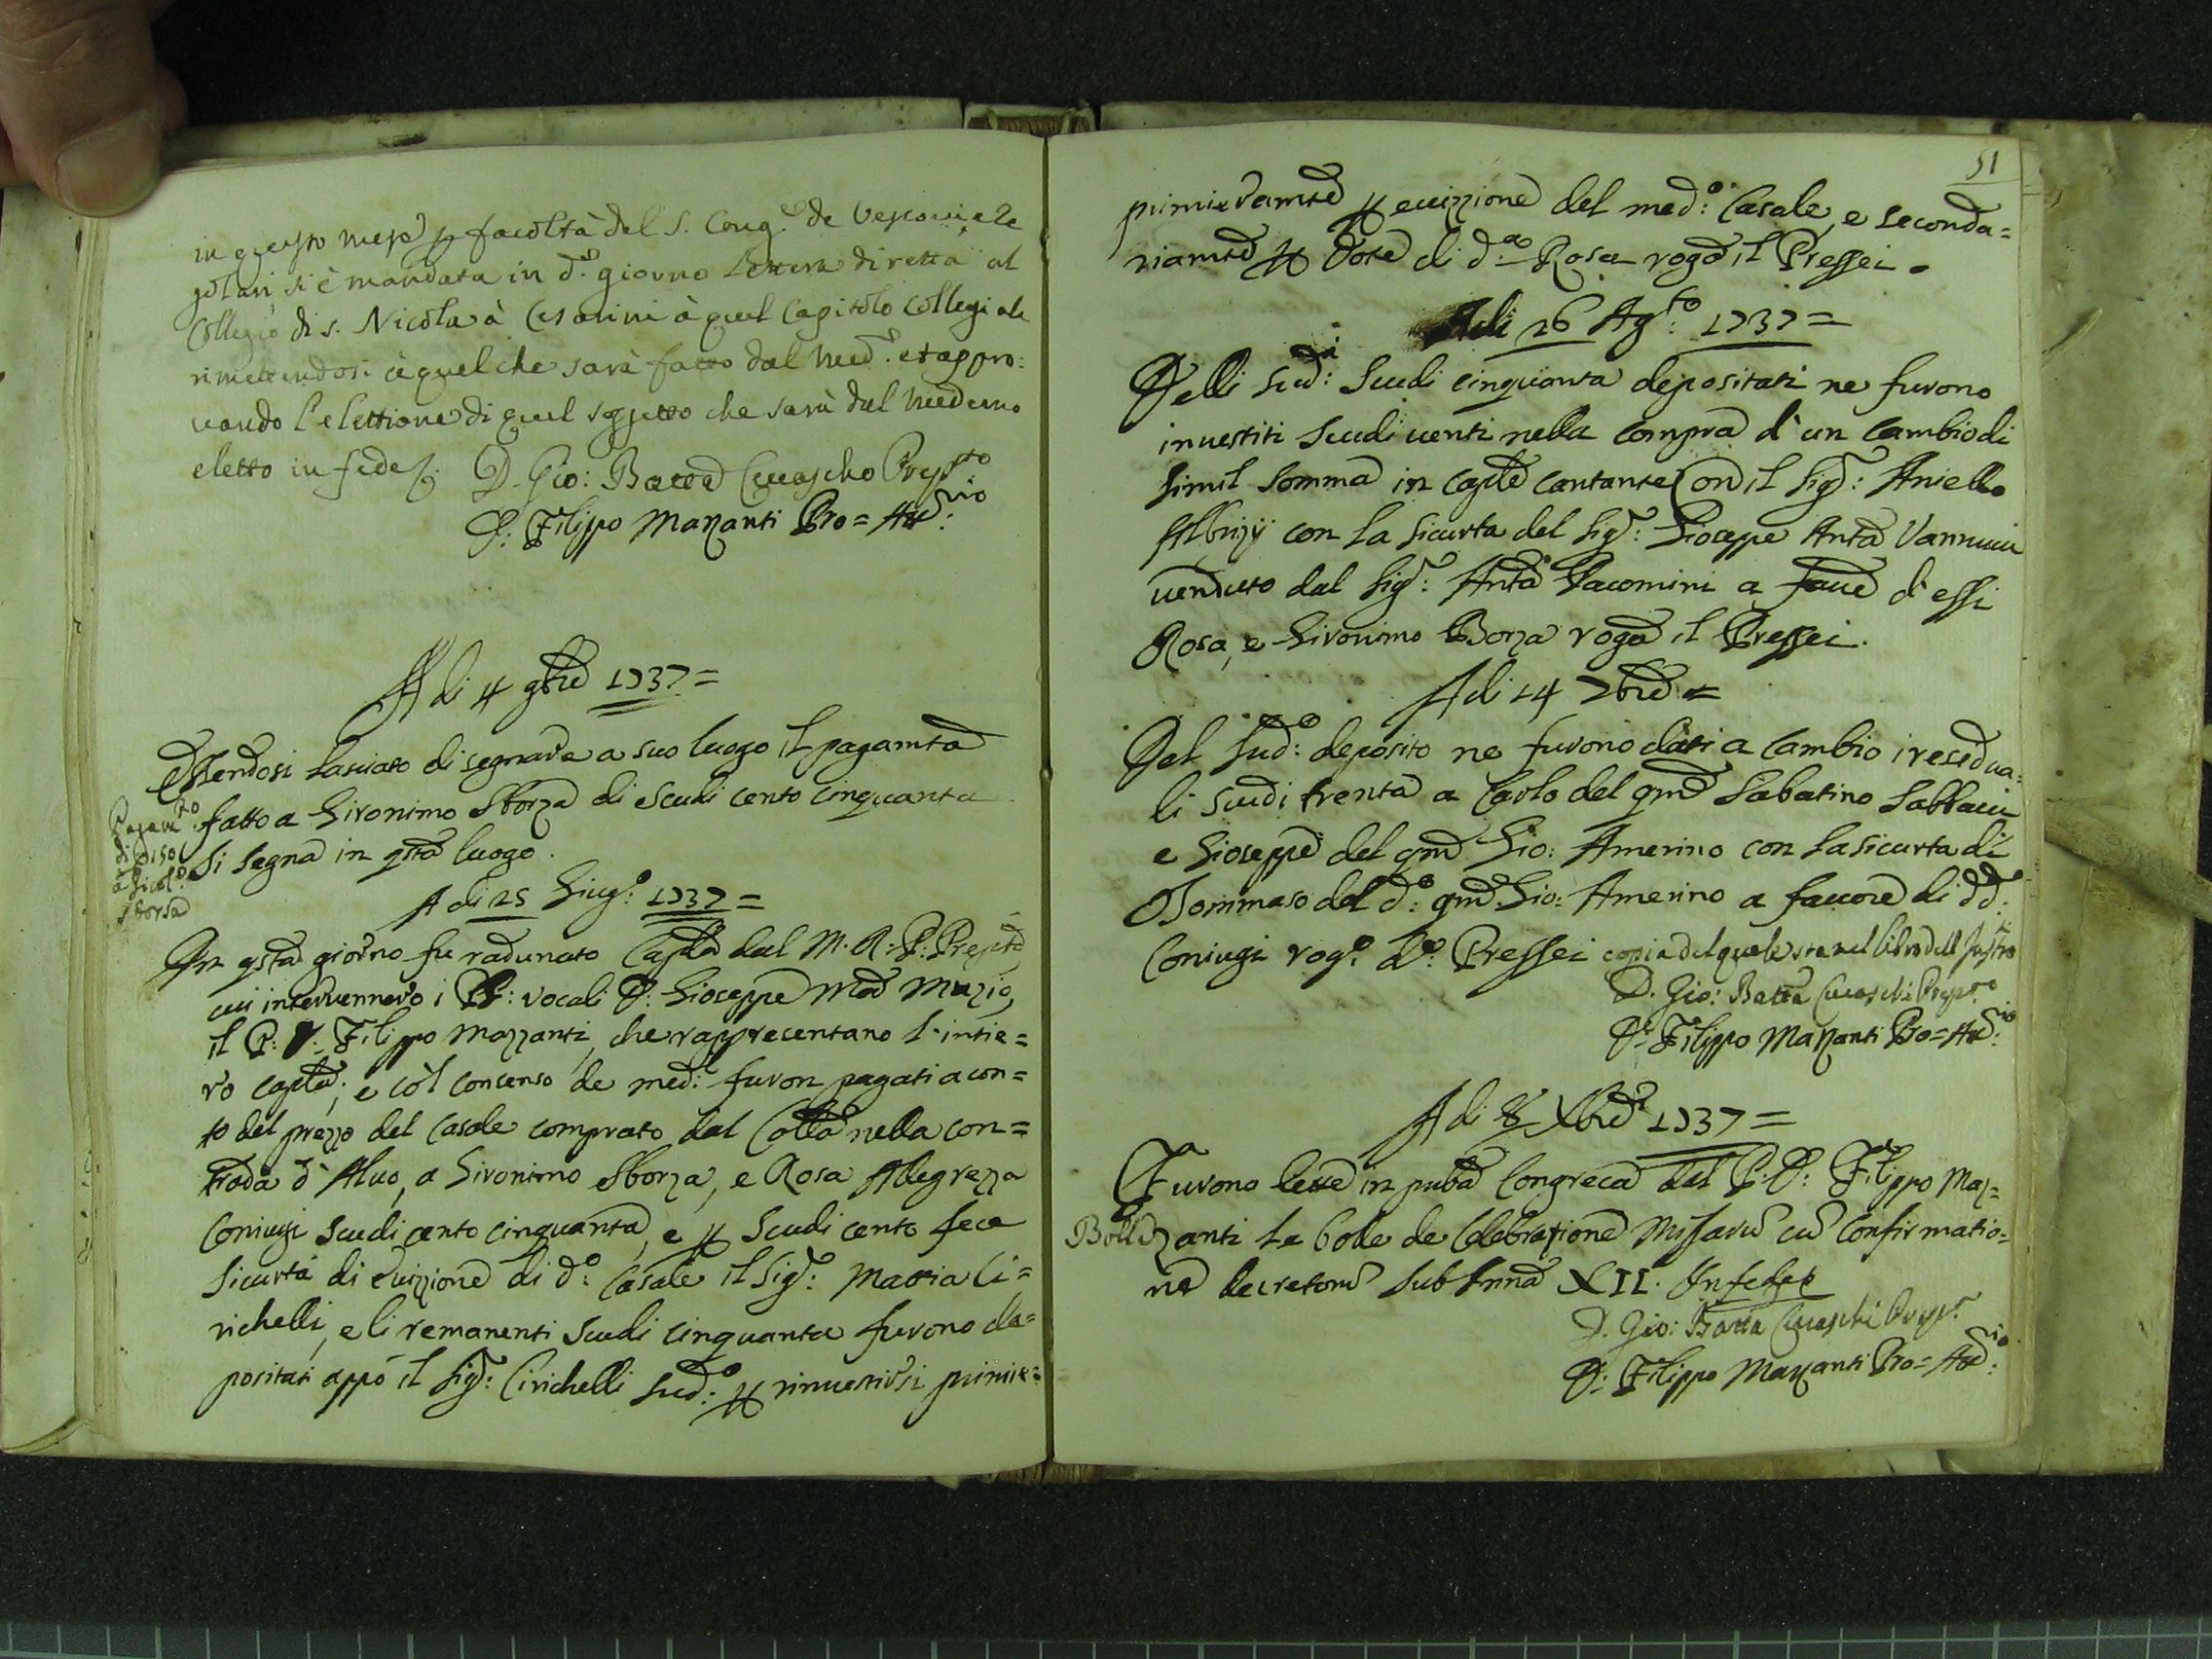 in questo mese p facoltà del S. Cong.e de Vescovi, e Re
golari si è mandata in d.o giorno lettera diretta al
Collegio di S. Nicola à Cesarini à quel Capitolo Collegiale
rimettendosi à quel che sarà fatto dal med.o et appro:
vando l'elettione di quel soggetto che sarà dal medemo
eletto in fede
D. Gio: Batta Prep.to
P: Filippo Mazzanti Pro=
A di 4 9bre 1737=
Essendosi lasciato di segnare a suo luogo il pagamto
fatto a Gironimo Sborza di Scudi cento cinquanta
si segna in qsto luogo.
Pagam.to
di 150
à Girol.o
Sborsa
A di 25 Giug.o 1737=
In qsto giorno fu radunato Caplo dal M. R. P: Prepto
cui intervennero i PP: vocali P: Gioseppe Ma Muzio,
il P: P: Filippo Mazzanti, che rappresentano l'intie=
ro caplo, e col consenso de med:i furon pagati a con=
to del prezzo del Casale comprato dal Collo nella con=
trada d'Alvo, a Gironimo Sborza, e Rosa Allegrezza
Coniugi Scudi cento cinquanta, e p Scudi cento fece
sicurtà di evizione di d:o Casale il Sig.r Mattia Ci=
richelli, e li remanenti Scudi cinquanta furono de=
positati appo il Sig.r Cirichelli sud:o p rinvestirsi primie=
51
primieramte p evizzione del med:o Casale, e seconda=
riamte p dote di d:a Rosa rogo il Pressei.
Adi 26 Ag:to 1737=
Delli sud:i Scudi cinquanta depositati ne furono
investiti Scudi venti nella compra d'un Cambio di
simil somma in caple cantante con il Sig.r Aniello
Albrizij con la sicurta del Sig.r Gioseppe Anto Vannucci
venduto dal Sig.r Anto Giacomini a favre d'essi
Rosa, e Gironimo Borza rogo il Pressei.
Adi 14 7bre=
Del sud:o deposito ne furono dati a Cambio i resedua=
li Scudi trenta a Carlo del qm Sabatino Sabbacci
e Gioseppe del qm Gio: Amerino con la sicurta di
Tommaso del d:o qm Gio: Amerino a favore di dd:
Coniugi rog:o d:o Pressei copia del quale sta nel libro dell'Instro
D. Gio: Batta Prep.to
P: Filippo Mazzanti Pro=
A di 8 Xbre 1737=
Furono lette in pubca Congreca dal P: P: Filippo Maz=
zanti le bolle de Celebratione Missaru cu Confirmatio=
ne decretoru sub Inno XII. In fede
Bolle
D. Gio: Batta Prep.
P: Filippo Mazzanti Pro=